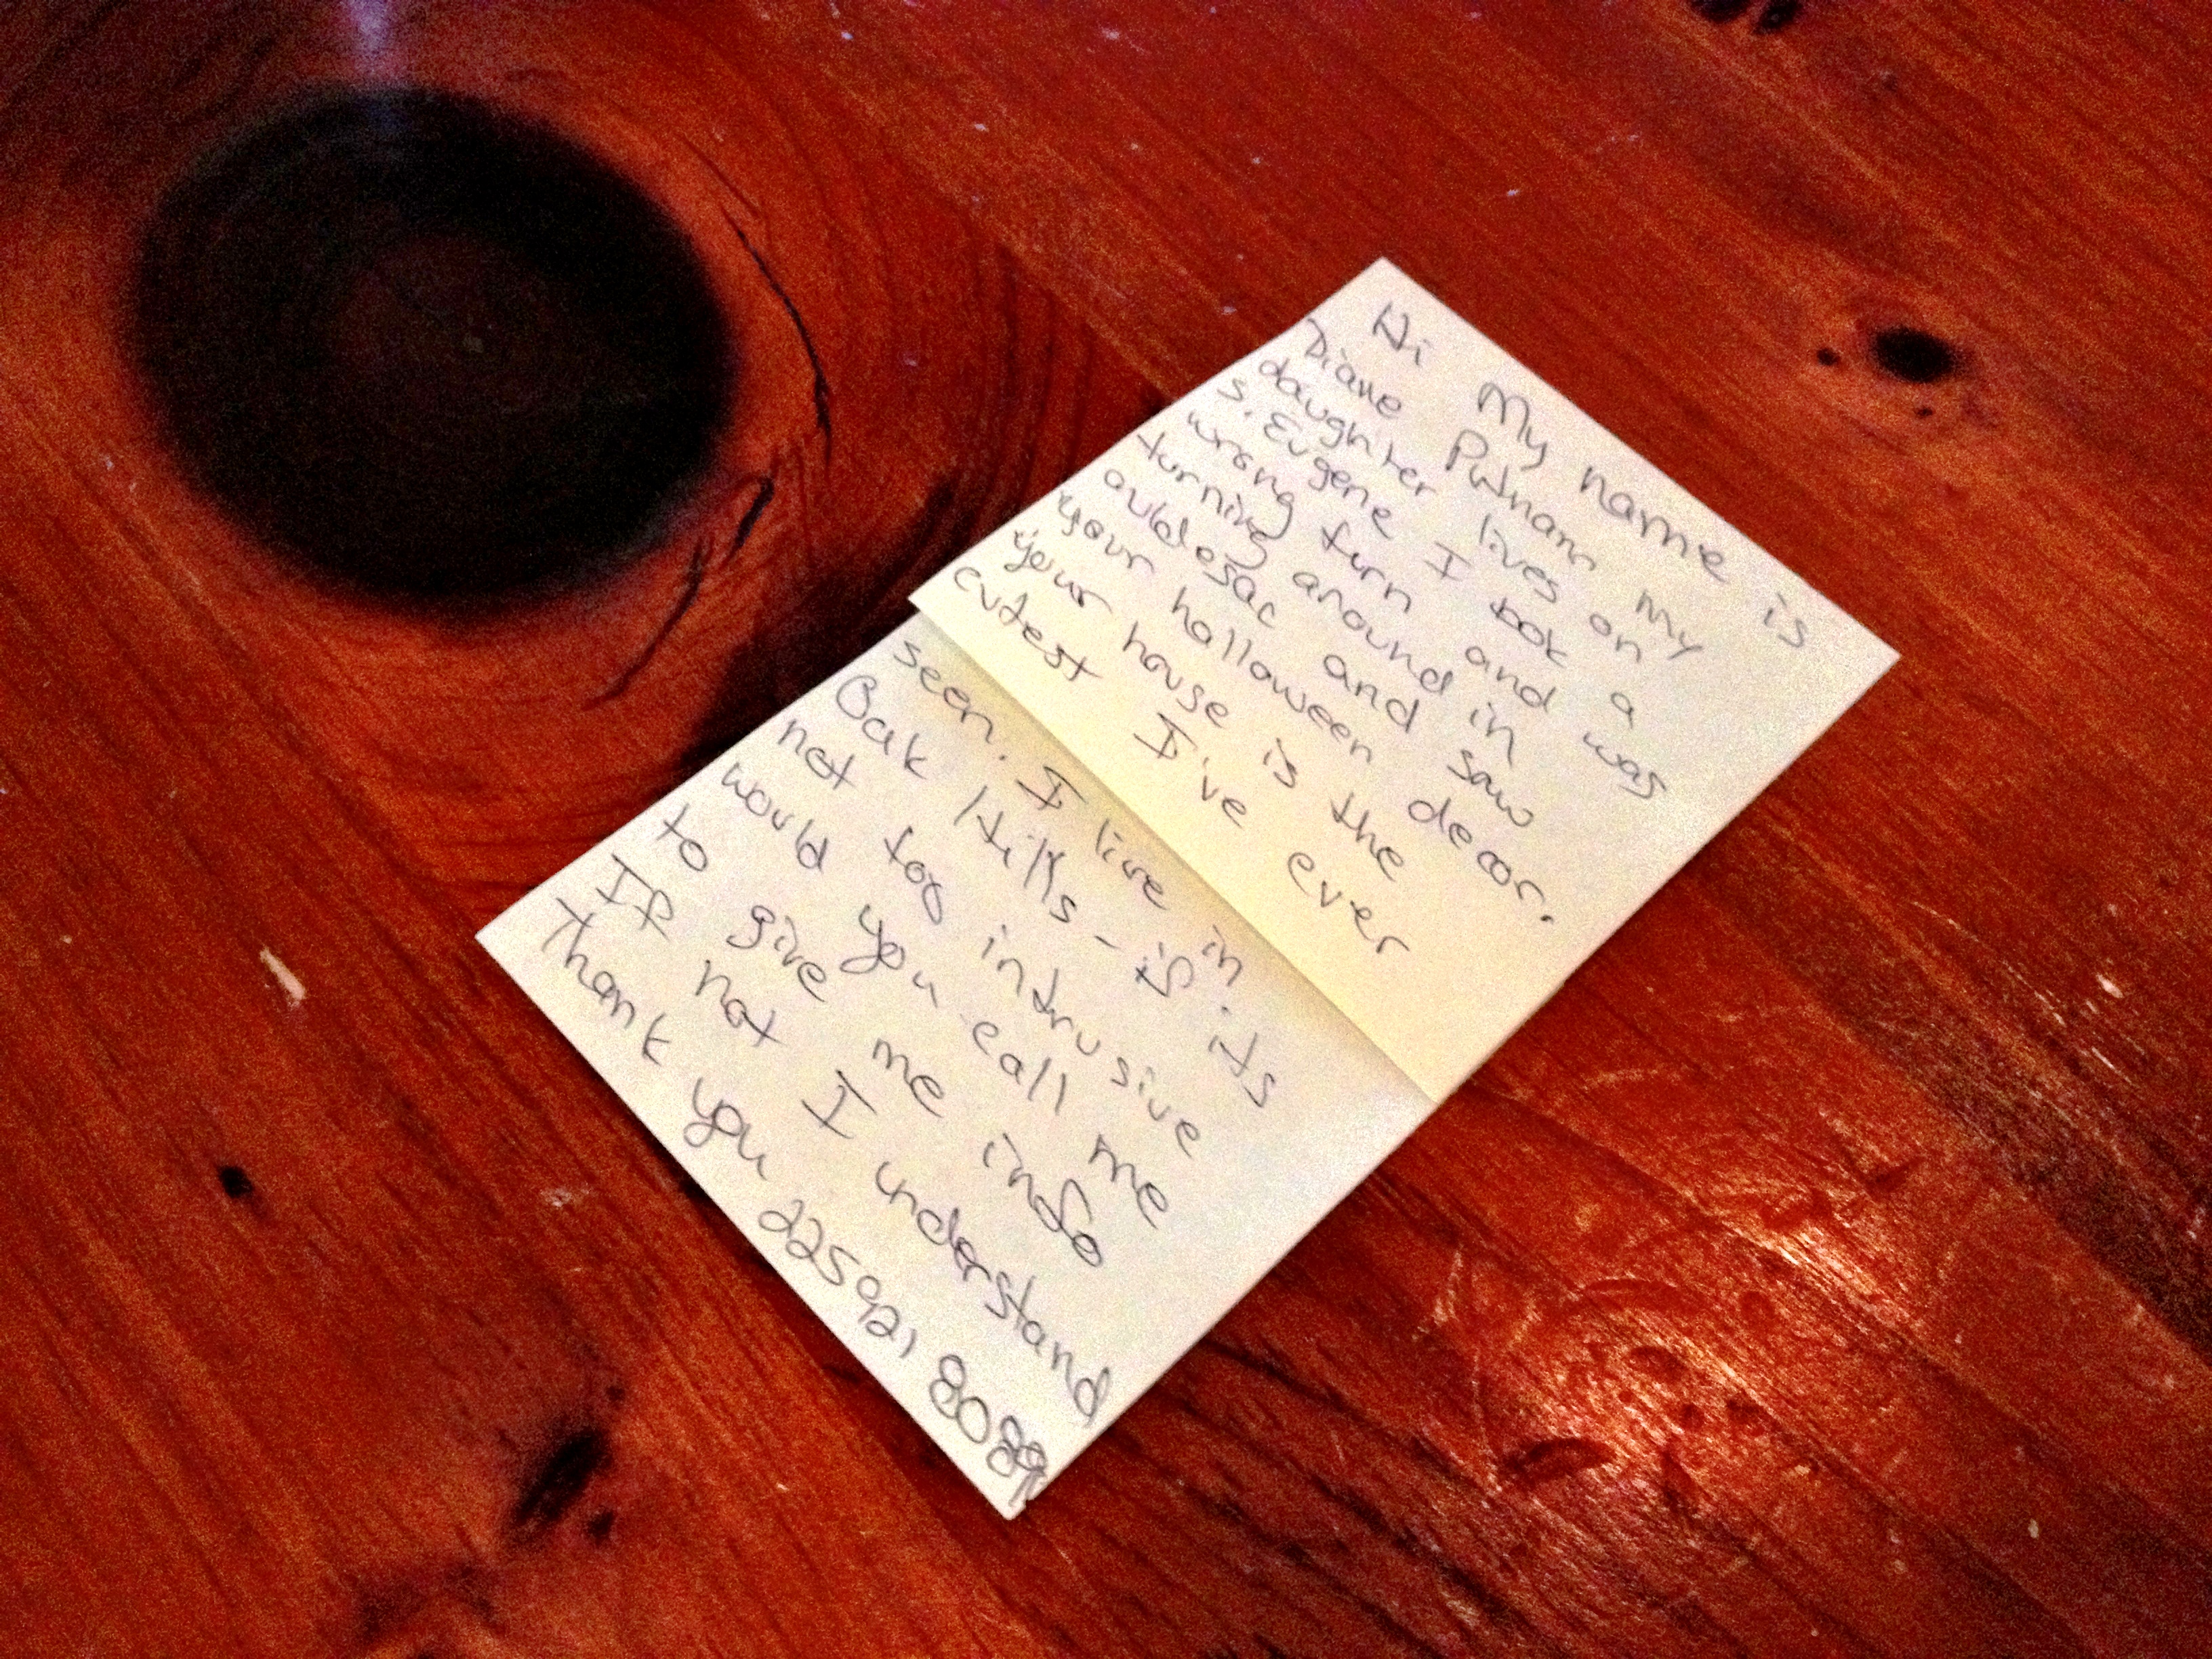 Hi My name is
Diane Putnam My
daughter lives on
S. Eugene I took a
wrong turn and was
turning around in
auldesac and saw
your halloween decor.
your house is the
cutest I've ever
seen. I live in
Oak Hills - if its
not too intrusive
would you call me
to give me info
If not I understand
Thank you 225 921 8089